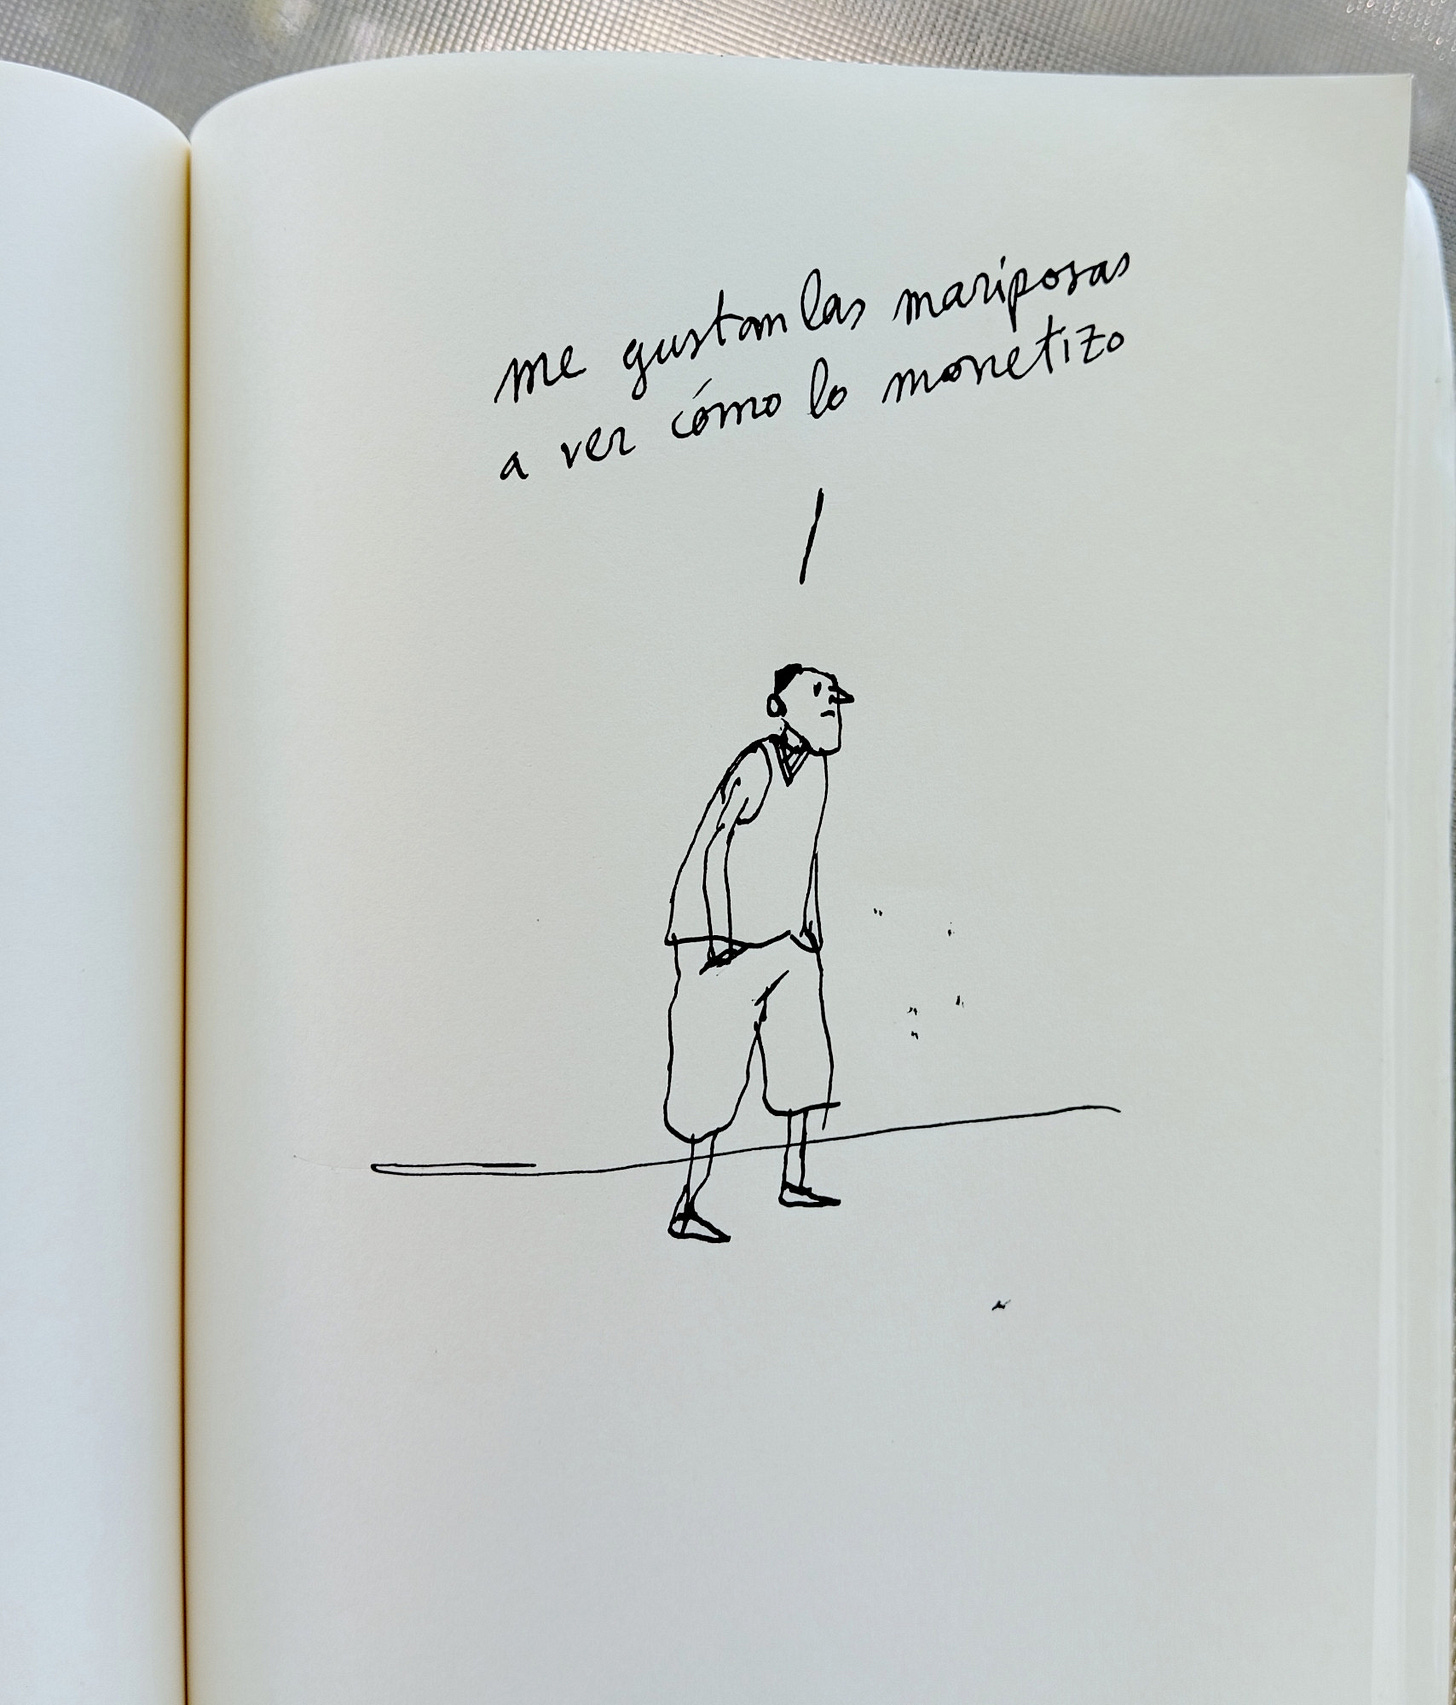 me gustan las mariposas
a ver cómo lo monetizo